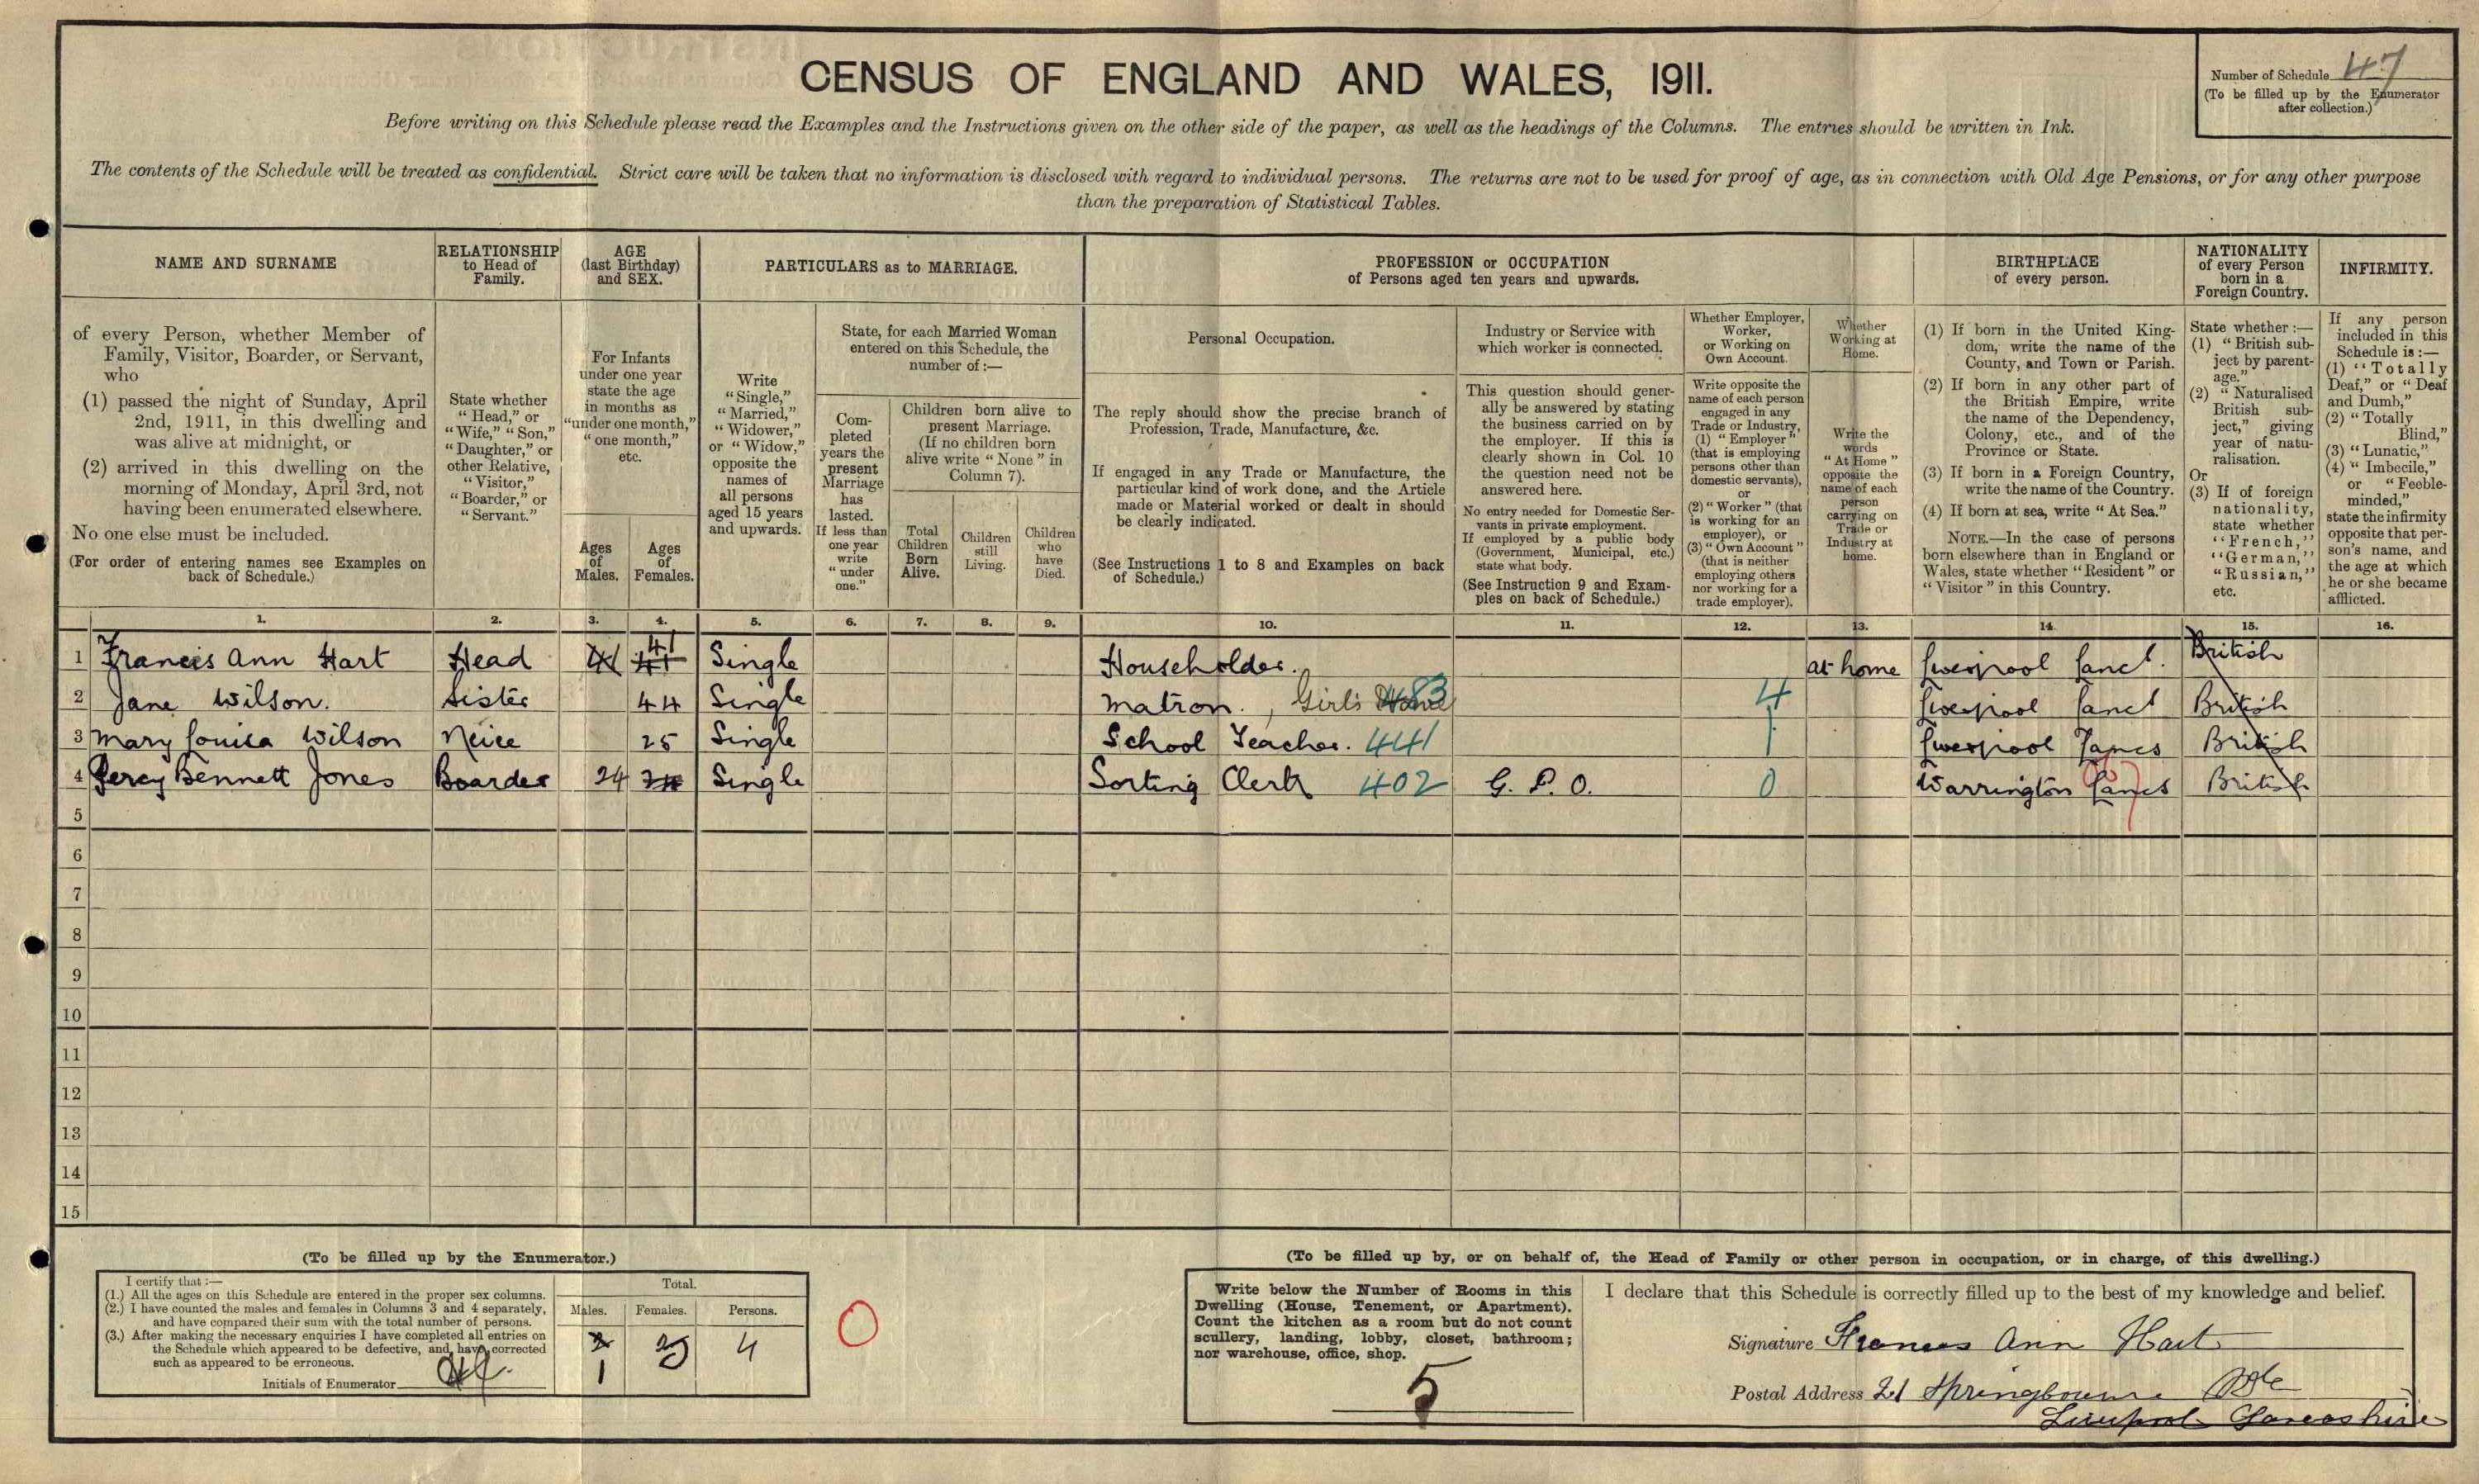 CENSUS OF ENGLAND AND WALES, 1911.
Number of Schedule 47
(To be filled up by the Enumerator
after collection.)
Before writing on this Schedule please read the Examples and the Instructions given on the other side of the paper, as well as the headings of the Columns. The entries should be written in Ink.
The contents of the Schedule will be treated as confidential. Strict care will be taken that no information is disclosed with regard to individual persons. The returns are not to be used for proof of age, as in connection with Old Age Pensions, or for any other purpose
than the preparation of Statistical Tables.
NAME AND SURNAME
of every Person, whether Member of
Family, Visitor, Boarder, or Servant,
who
(1) passed the night of Sunday, April
2nd, 1911, in this dwelling and
was alive at midnight, or
(2) arrived in this dwelling on the
morning of Monday, April 3rd, not
having been enumerated elsewhere.
No one else must be included.
(For order of entering names see Examples on
back of Schedule.)
RELATIONSHIP
to Head of
Family.
State whether
"Head," or
"Wife," "Son,"
"Daughter," or
other Relative,
"Visitor,"
"Boarder," or
"Servant."
AGE
(last Birthday)
and SEX.
For Infants
under one year
state the age
in months as
"under one month,"
"one month,"
etc.
Ages
of
Males.
Ages
of
Females.
PARTICULARS as to MARRIAGE.
Write
"Single,"
"Married,"
"Widower,"
or "Widow,"
opposite the
names of
all persons
aged 15 years
and upwards.
State, for each Married Woman
entered on this Schedule, the
number of :—
Com-
pleted
years the
present
Marriage
has
lasted.
If less than
one year
write
"under
one."
Children born alive to
present Marriage.
(If no children born
alive write "None" in
Column 7).
Total
Children
Born
Alive.
Children
still
Living.
Children
who
have
Died.
PROFESSION or OCCUPATION
of Persons aged ten years and upwards.
Personal Occupation.
The reply should show the precise branch of
Profession, Trade, Manufacture, &c.
If engaged in any Trade or Manufacture, the
particular kind of work done, and the Article
made or Material worked or dealt in should
be clearly indicated.
(See Instructions 1 to 8 and Examples on back
of Schedule.)
Industry or Service with
which worker is connected.
This question should gener-
ally be answered by stating
the business carried on by
the employer. If this is
clearly shown in Col. 10
the question need not be
answered here.
No entry needed for Domestic Ser-
vants in private employment.
If employed by a public body
(Government, Municipal, etc.)
state what body.
(See Instruction 9 and Exam-
ples on back of Schedule.)
Whether Employer,
Worker,
or Working on
Own Account.
Write opposite the
name of each person
engaged in any
Trade or Industry,
(1) "Employer"
(that is employing
persons other than
domestic servants),
or
(2) "Worker" (that
is working for an
employer), or
(3) "Own Account"
(that is neither
employing others
nor working for a
trade employer).
Whether
Working at
Home.
Write the
words
"At Home"
opposite the
name of each
person
carrying on
Trade or
Industry at
home.
BIRTHPLACE
of every person.
(1) If born in the United King-
dom, write the name of the
County, and Town or Parish.
(2) If born in any other part of
the British Empire, write
the name of the Dependency,
Colony, etc., and of the
Province or State.
(3) If born in a Foreign Country,
write the name of the Country.
(4) If born at sea, write "At Sea."
NOTE.—In the case of persons
born elsewhere than in England or
Wales, state whether "Resident" or
"Visitor" in this Country.
NATIONALITY
of every Person
born in a
Foreign Country.
State whether :—
(1) "British sub-
ject by parent-
age."
(2) "Naturalised
British sub-
ject," giving
year of natu-
ralisation.
Or
(3) If of foreign
nationality,
state whether
"French,"
"German,"
"Russian,"
etc.
INFIRMITY.
If any person
included in this
Schedule is :—
(1) "Totally
Deaf," or "Deaf
and Dumb,"
(2) "Totally
Blind,"
(3) "Lunatic,"
(4) "Imbecile,"
or "Feeble-
minded,"
state the infirmity
opposite that per-
son's name, and
the age at which
he or she became
afflicted.
1. 2. 3. 4. 5. 6. 7. 8. 9. 10. 11. 12. 13. 14. 15. 16.
1 Francis Ann Hart Head 41 41 41 Single Householder. at home Liverpool Lancs. British
2 Jane Wilson. Sister 44 Single Matron., Girl's Home 483 4 Liverpool Lancs British
3 Mary Louisa Wilson Neice 25 Single School Teacher. 441 1 Liverpool Lancs British
4 Percy Bennett Jones Boarder 24 24 Single Sorting Clerk 402 G. P. O. 0 Warrington Lancs British
5
6
7
8
9
10
11
12
13
14
15
(To be filled up by the Enumerator.)
I certify that :—
(1.) All the ages on this Schedule are entered in the proper sex columns.
(2.) I have counted the males and females in Columns 3 and 4 separately,
and have compared their sum with the total number of persons.
(3.) After making the necessary enquiries I have completed all entries on
the Schedule which appeared to be defective, and have corrected
such as appeared to be erroneous.
Initials of Enumerator
Total.
Males. Females. Persons.
2 1 3 4
0
(To be filled up by, or on behalf of, the Head of Family or other person in occupation, or in charge, of this dwelling.)
Write below the Number of Rooms in this
Dwelling (House, Tenement, or Apartment).
Count the kitchen as a room but do not count
scullery, landing, lobby, closet, bathroom;
nor warehouse, office, shop.
5
I declare that this Schedule is correctly filled up to the best of my knowledge and belief.
Signature Frances Ann Hart
Postal Address 21 Springbourne
Liverpool Lancashire